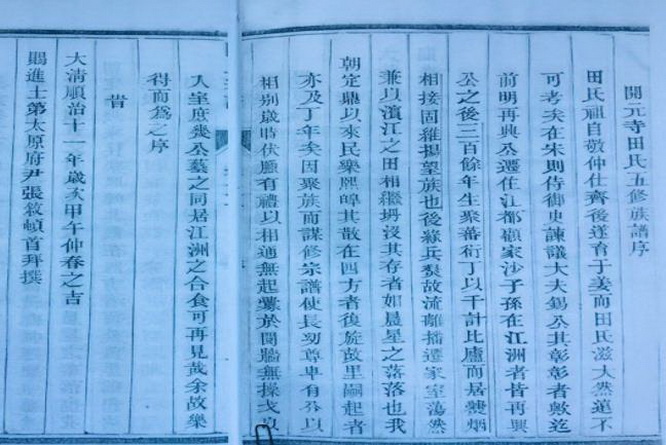 開元寺田氏五修族譜序
田氏祖自敬仲仕齊後遂育于姜而田氏滋大然遠不
可考矣在宋則侍御史諫議大夫錫公其彰彰者歟迄
前明再興公遷住江都顧家沙子孫在江洲者皆再興
公之後三百餘年生聚蕃衍丁以千計比廬而居烟
相接固維揚望族也後兵燹故流離播遷家室蕩然
兼以濱江之田相繼坍沒其存者如晨星之落落也我
朝定鼎以來民樂熙皞其散在四方者後旋故里嗣起者
亦及丁年矣因聚族而謀修宗譜使長幼尊卑有分以
相別歲時伏臘有禮以相通無起釁於鬩牆無操戈
入室庶幾公藝之同居江洲之合食可再見哉余故樂
得而為之序
旹
大清順治十一年歲次甲午仲春之吉
賜進士第太原府尹張敘頓首拜撰